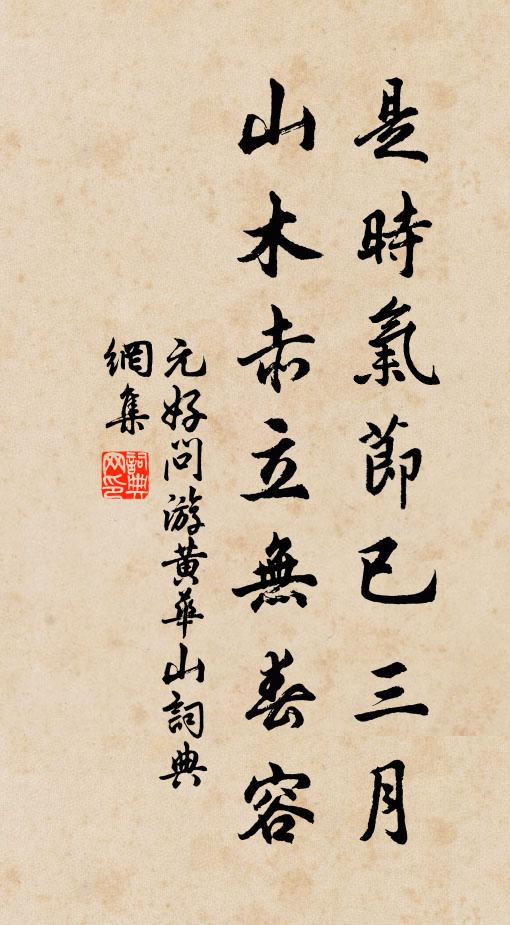 是時氣節已三月
山木赤立無春容
元好問游黃華山詞典
網集
詞典
网印